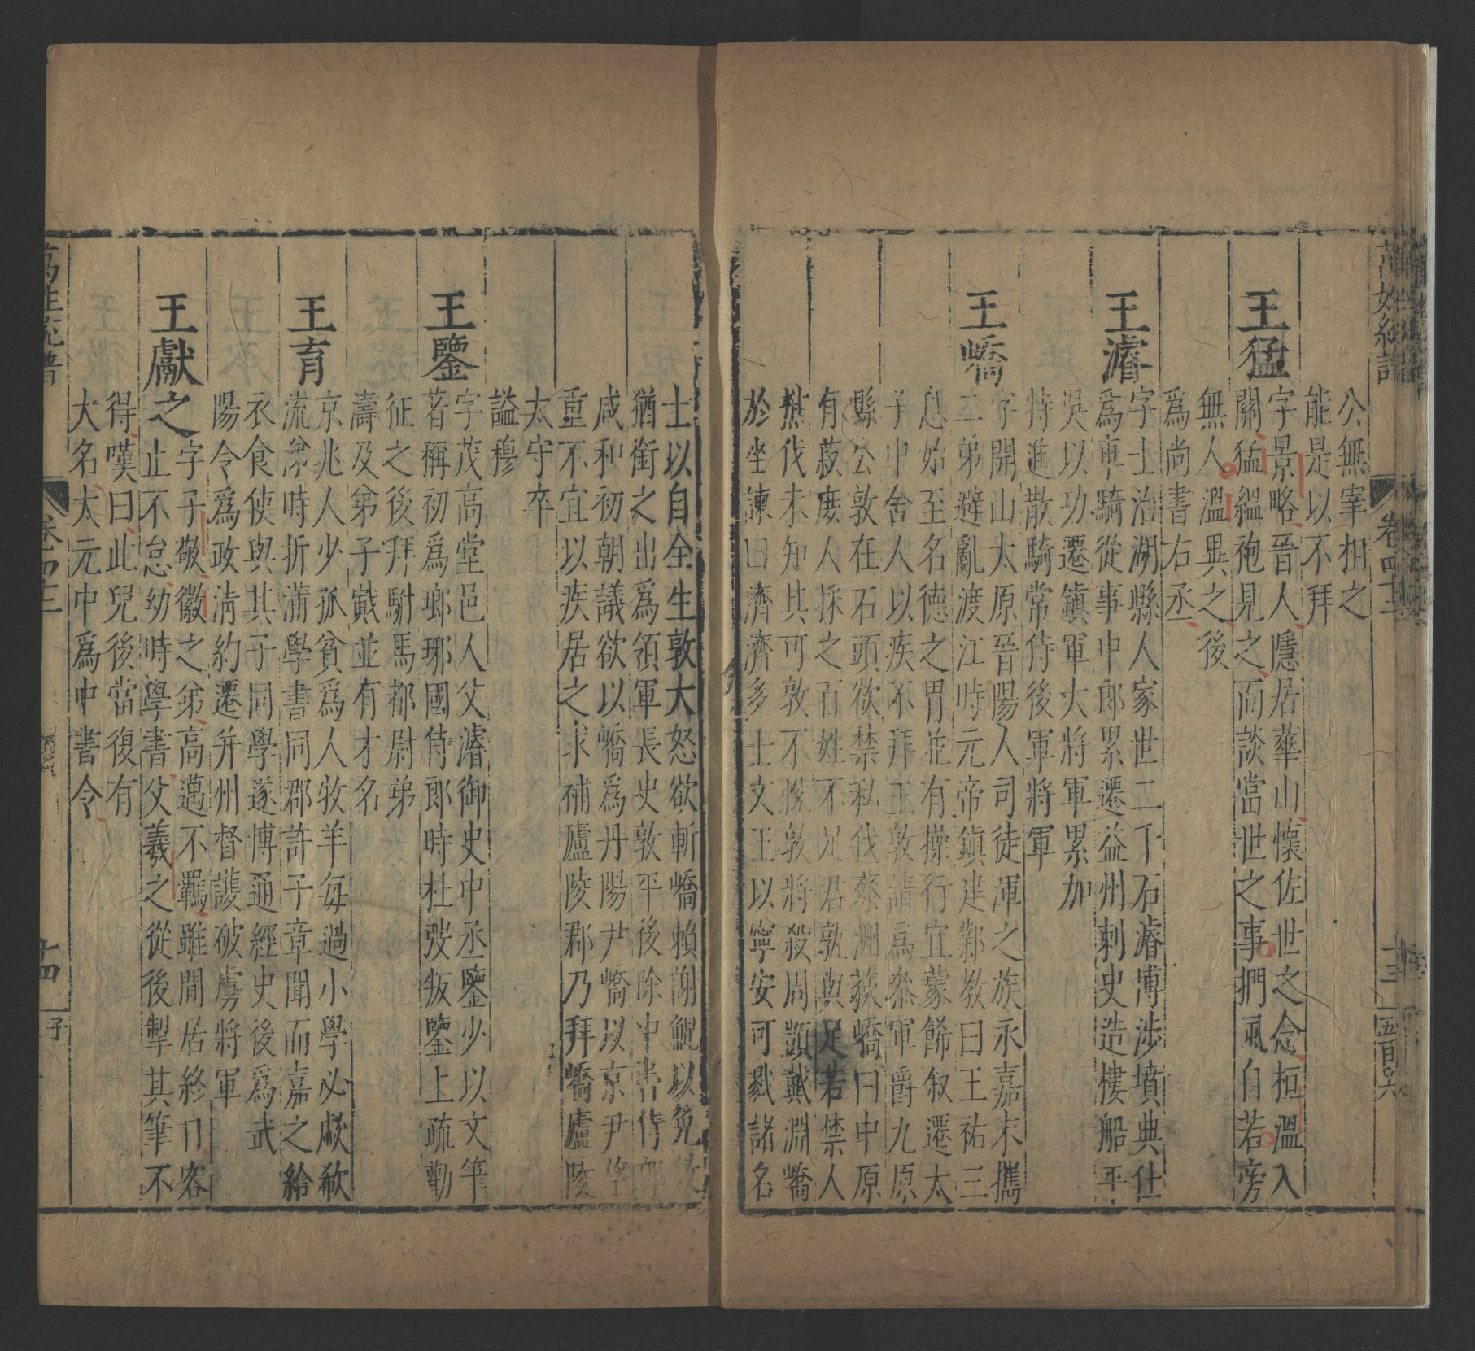 公無宰相之
能是以不拜
王猛
字景略晉人隱居華山懷佐世之念桓溫入
關猛縕袍見之而談當世之事捫風自若旁
無人溫異之後
為尚書右丞
王濬
字士治湖縣人家世二千石濬博涉墳典仕
為車騎從事中郎累遷益州刺史造樓船平
吳以功遷鎮軍大將軍累加
特進散騎常侍後軍將軍
王嶠
字開山太原晉陽人司徒渾之族永嘉末攜
二弟避亂渡江時元帝鎮建鄴教曰王祐三
息始至名德之胄並有操行宜蒙餙叙遷太
子中舍人以疾不拜王敦請為叅軍爵九原
縣公敦在石頭欲禁私伐蔡洲荻嶠曰中原
有菽庶人採之百姓不足君孰與足若禁人
樵伐未知其可敦不悅敦將殺周顗戴淵嶠
於坐諫曰濟濟多士文王以寧安可戮諸名
士以自全生敦大怒欲斬嶠賴謝鯤以免
猶銜之出為領軍長史敦平後除中書侍郎
咸和初朝議欲以嶠為丹陽尹嶠以京尹
重不宜以疾居之求補廬陵郡乃拜嶠廬陵
太守卒
謚穆
王鑒
字茂高堂邑人父濬御史中丞鑒少以文筆
著稱初為瑯琊國侍郎時杜弢叛鑒上疏勸
征之後拜駙馬都尉弟
濤及弟子戭並有才名
王育
京兆人少孤貧為人牧羊每過小學必歔欷
流涕時折蒲學書同郡許子章聞而嘉之給
衣食使與其子同學遂博通經史後為武
陽令為政清約遷并州督護破虜將軍
王獻之
字子敬徽之弟高邁不羈雖閒居終日容
止不怠幼時學書父羲之從後掣其筆不
得嘆曰此兒後當復有
大名太元中為中書令